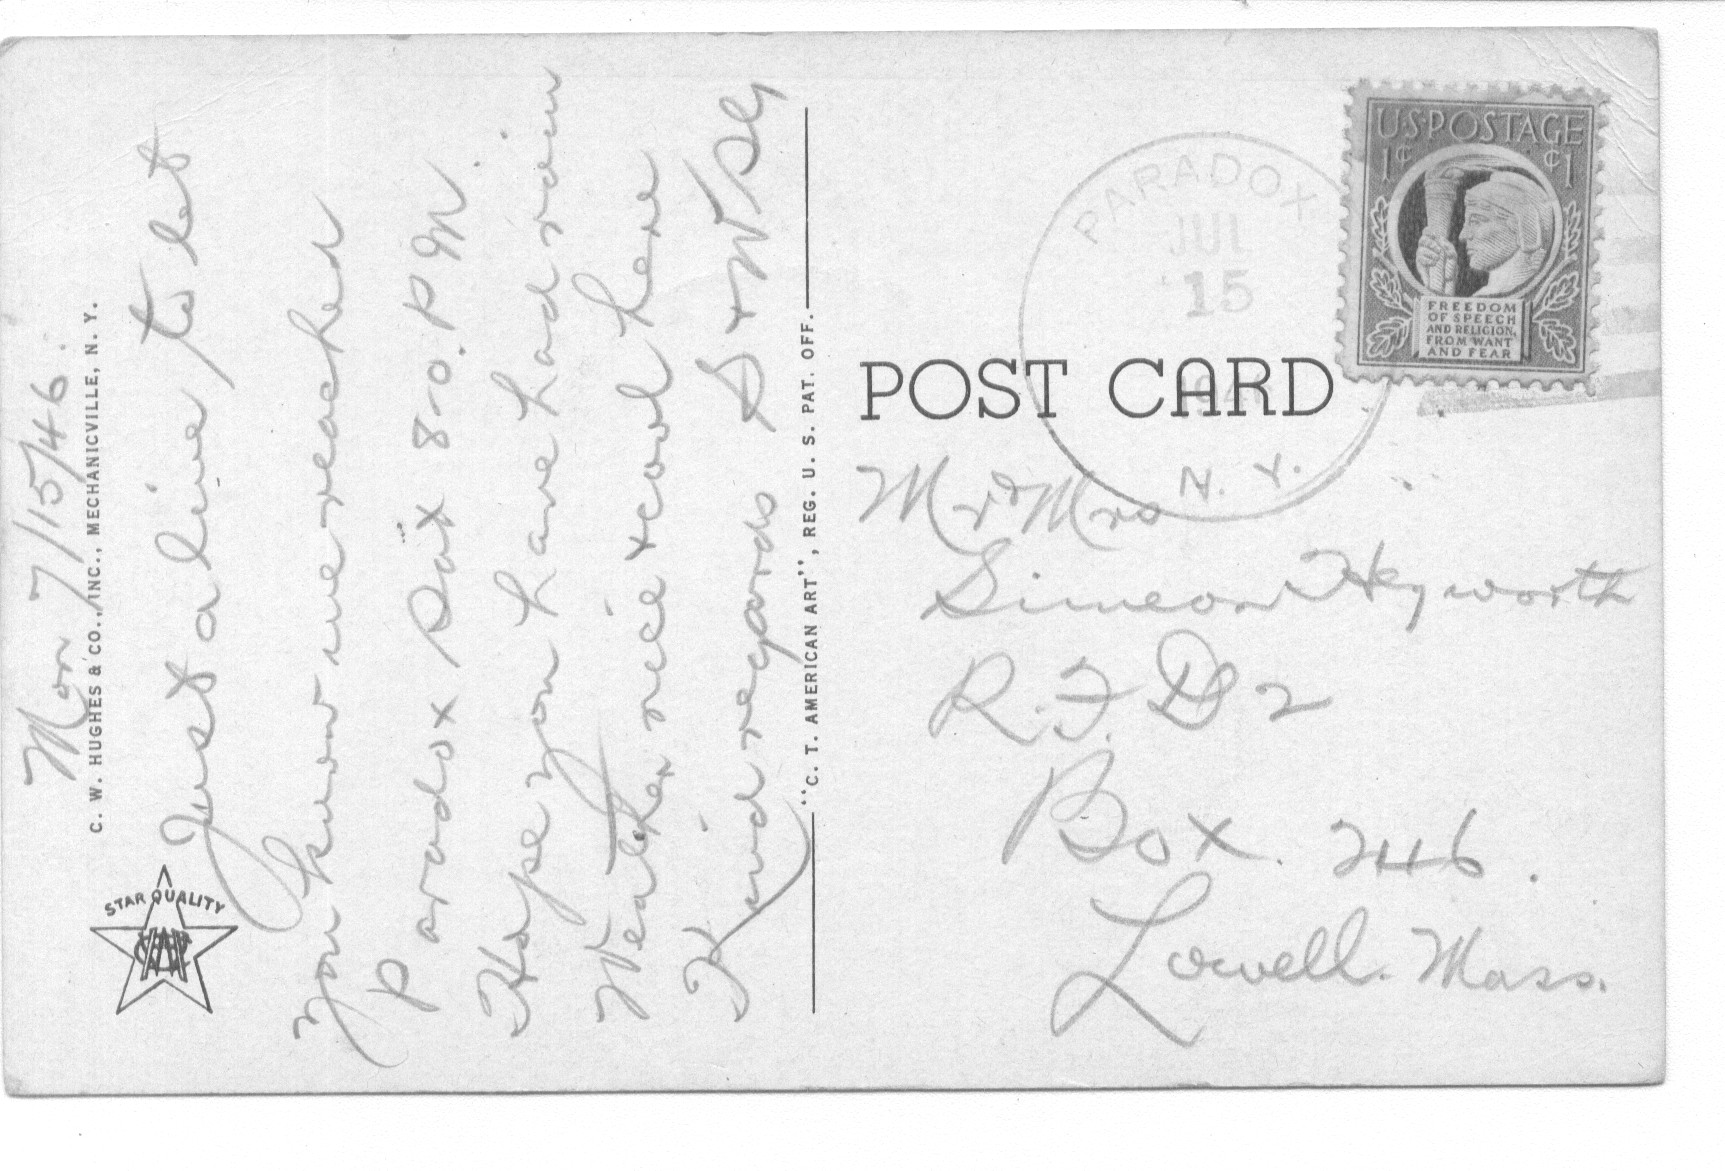 Mon 7/15/46.
C. W. HUGHES & CO., INC., MECHANICVILLE, N. Y.
STAR QUALITY
Just a line to let
you know we reached
Paradox Sat 8-0. P M.
Hope you have had rain
Weather nice & cool here
Kind regards S & W
"C. T. AMERICAN ART", REG. U. S. PAT. OFF.
PARADOX
JUL
15
1946
N. Y.
U·S·POSTAGE
1¢ ¢1
FREEDOM
OF SPEECH
AND RELIGION,
FROM WANT
AND FEAR
POST CARD
Mr & Mrs
Simeon Heyworth
R.F.D 2
Box. 246.
Lowell. Mass.